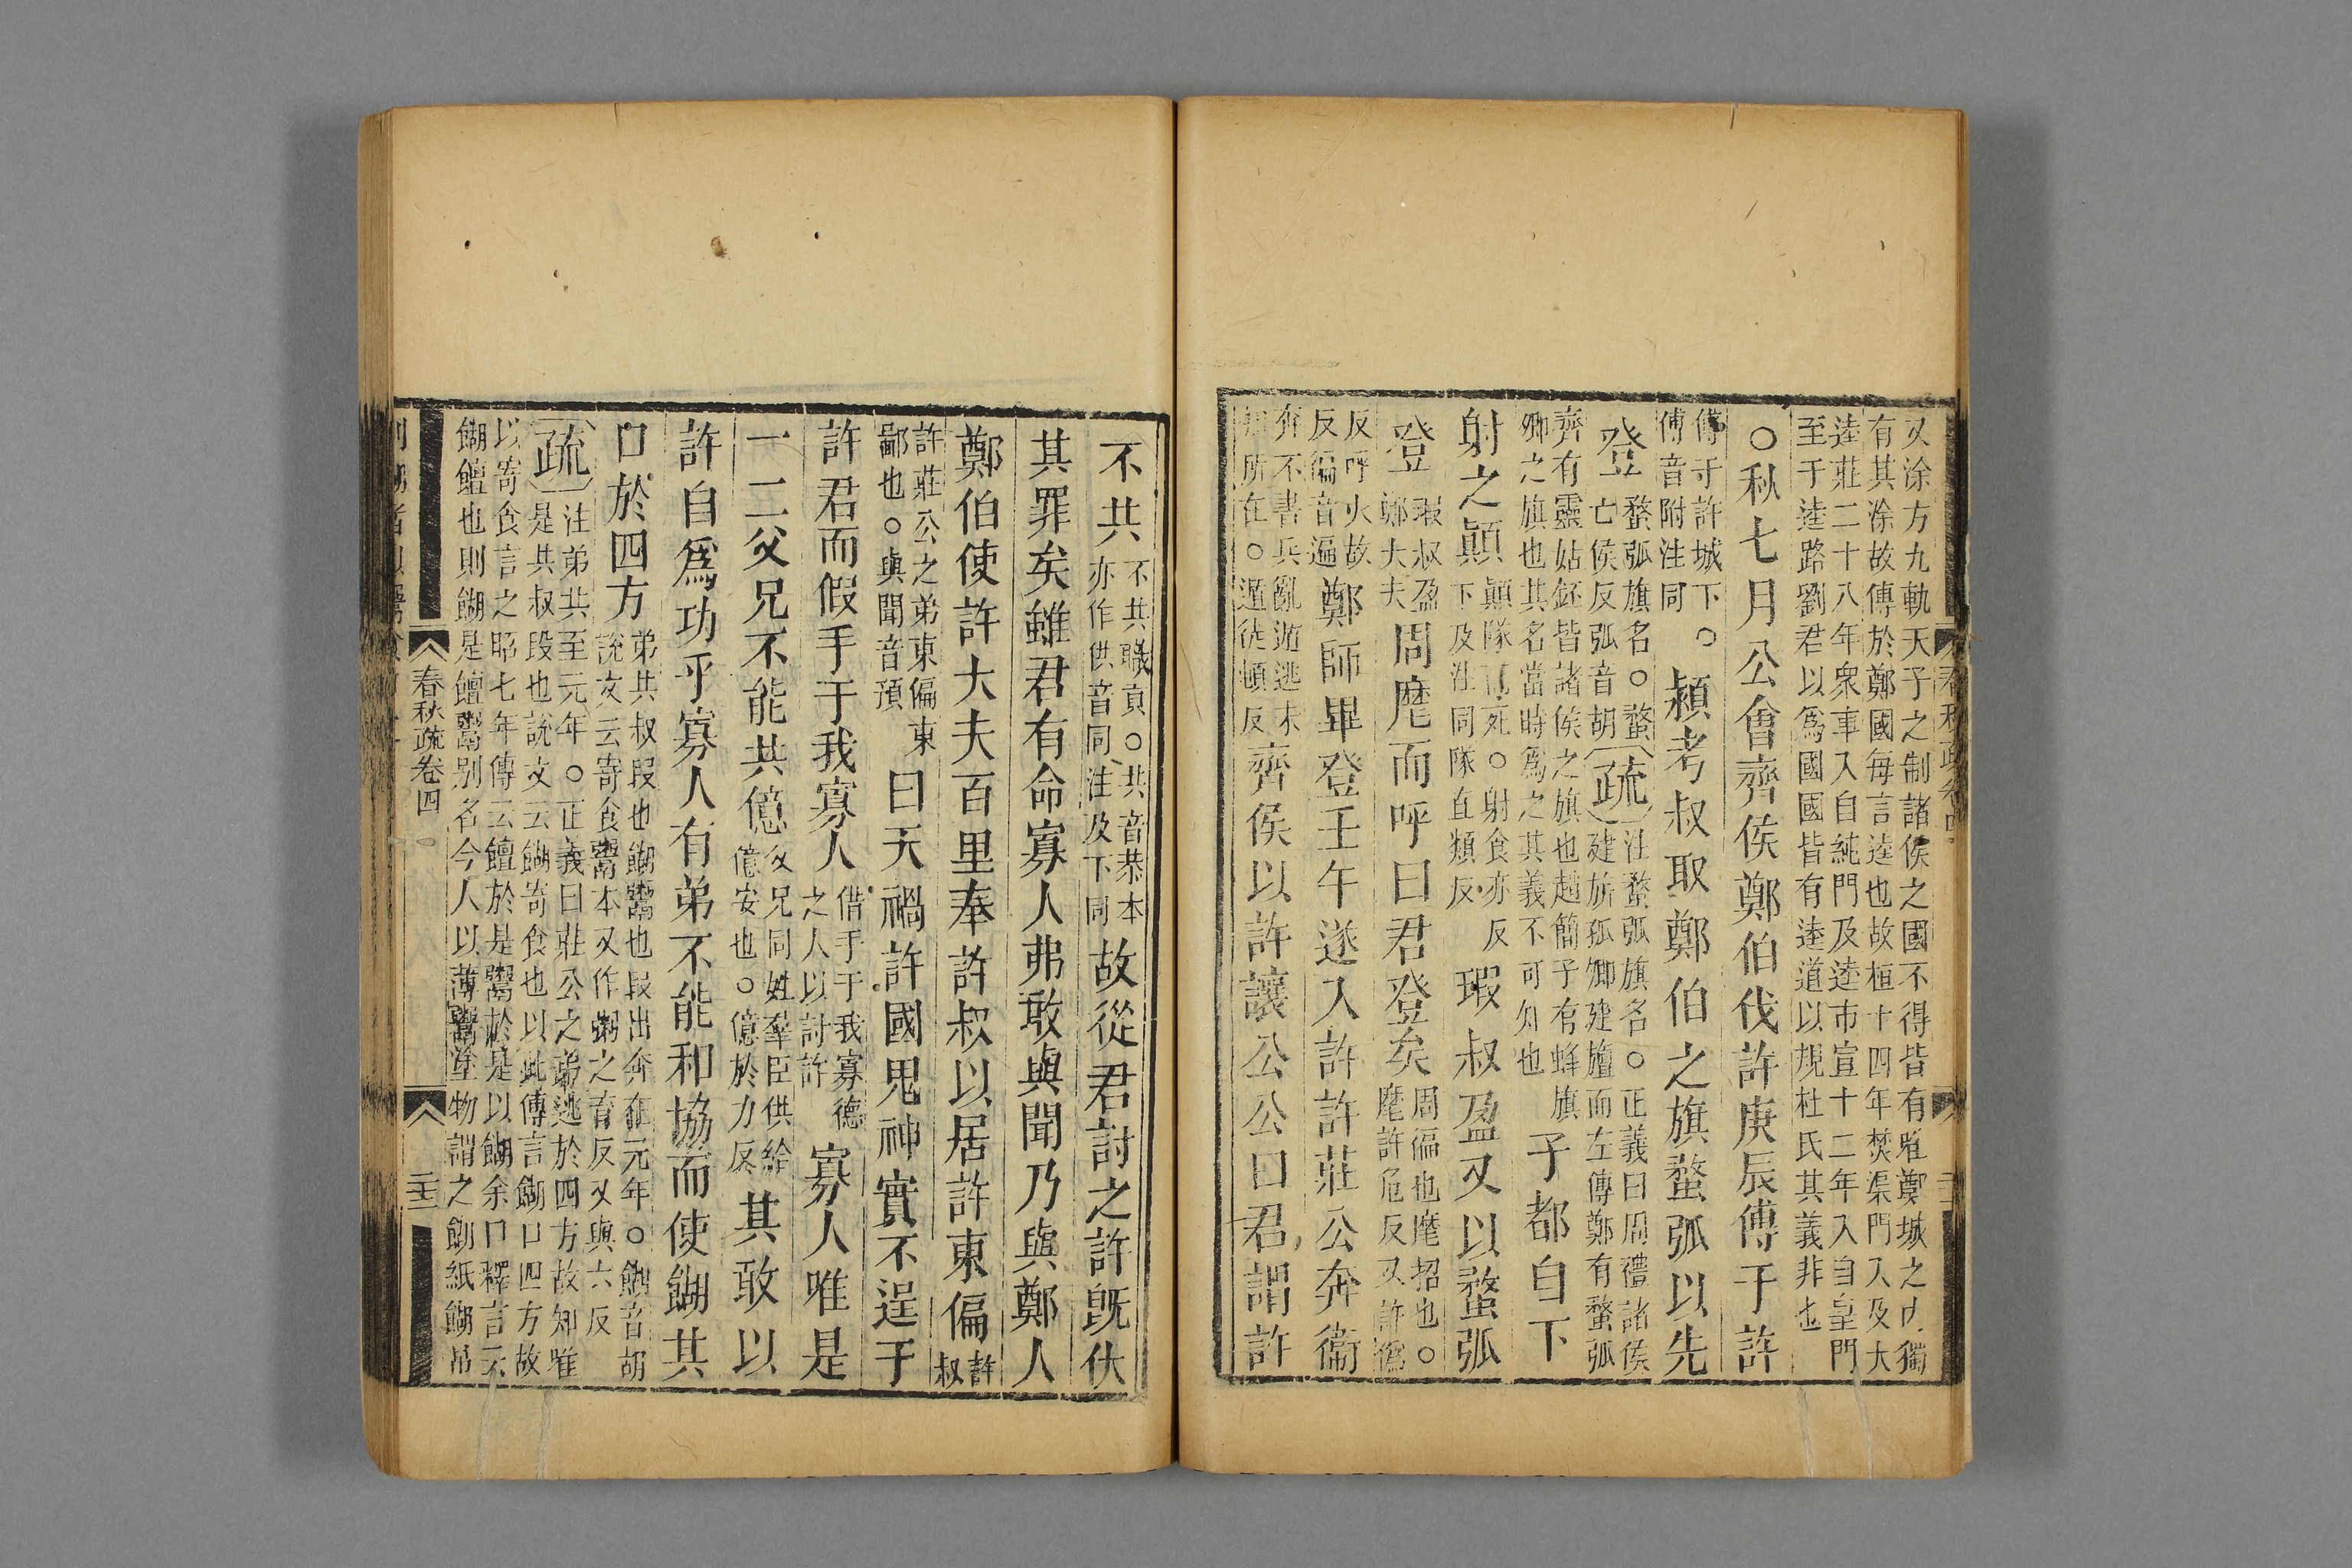 又涂方九軌天子之制諸侯之國不得皆有唯鄭城之內獨
有其涂故傳於鄭國每言逵也故桓十四年焚渠門入及大
逵莊二十八年衆車入自純門及逵市宣十二年入自皇門
至于逵路劉君以爲國國皆有逵道以規杜氏其義非也
○秋七月公會齊侯鄭伯伐許庚辰傅于許
傅于許城下。
傅音附注同
潁考叔取鄭伯之旗蝥弧以先
登
蝥弧旗名○蝥
亡侯反弧音胡
疏
注蝥弧旗名○正義曰周禮諸侯
建旂孤卿建旜而左傳鄭有蝥弧
齊有靈姑鉟皆諸侯之旗也趙簡子有蜂旗
卿之旗也其名當時爲之其義不可知也
子都自下
射之顚
顚隊而死○射食亦反
下及注同隊直類反
瑕叔盈又以蝥弧
登
瑕叔盈
鄭大夫
周麾而呼曰君登矣
周徧也麾招也○
麾許危反又許僞
反呼火故
反徧音遍
鄭師畢登壬午遂入許許莊公奔衞
奔不書兵亂遁逃未
知所在○遁徒頓反
齊侯以許讓公公曰君謂許
不共
不共職貢○共音恭本
亦作供音同注及下同
故從君討之許旣伏
其罪矣雖君有命寡人弗敢與聞乃與鄭人
鄭伯使許大夫百里奉許叔以居許東偏
許叔
許莊公之弟東偏東
鄙也○與聞音預
曰天禍許國鬼神實不逞于
許君而假手于我寡人
借手于我寡德
之人以討許
寡人唯是
一二父兄不能共億
父兄同姓羣臣供給
億安也○億於力反
其敢以
許自爲功乎寡人有弟不能和協而使餬其
口於四方
弟共叔段也餬鬻也段出奔在元年○餬音胡
說文云寄食鬻本又作粥之育反又與六反
疏
注弟共至元年○正義曰莊公之弟逃於四方故知唯
是共叔段也說文云餬寄食也以此傳言餬口四方故
以寄食言之昭七年傳云饘於是鬻於是以餬余口釋言云
餬饘也則餬是饘鬻別名今人以薄鬻塗物謂之餬紙餬帛
春秋疏卷四
二十三